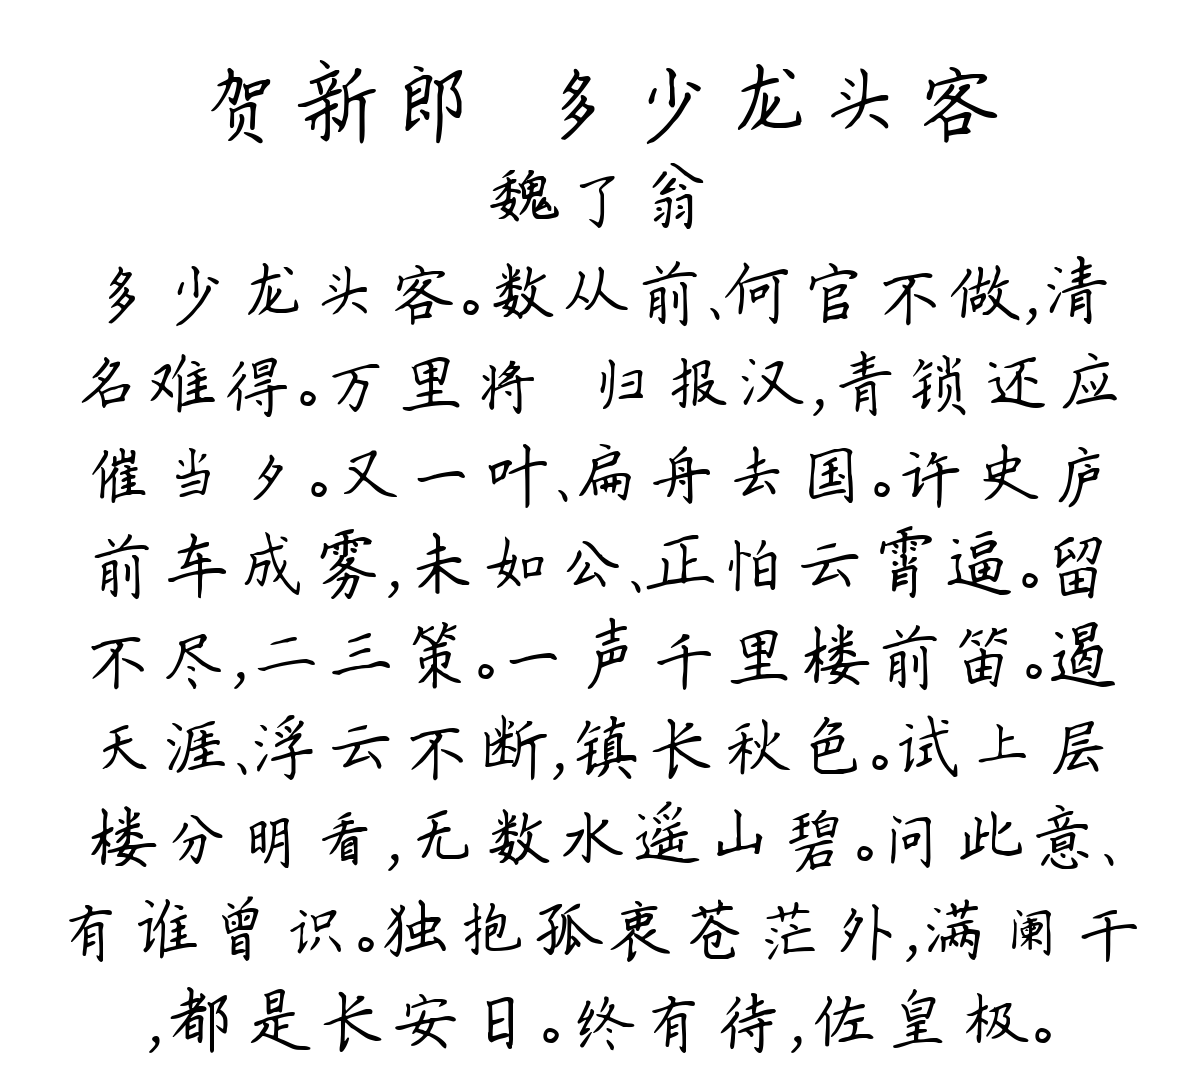 贺新郎 多少龙头客
魏了翁
多少龙头客。数从前、何官不做,清
名难得。万里将 归报汉,青锁还应
催当夕。又一叶、扁舟去国。许史庐
前车成雾,未如公、正怕云霄逼。留
不尽,二三策。一声千里楼前笛。遏
天涯、浮云不断,镇长秋色。试上层
楼分明看,无数水遥山碧。问此意、
有谁曾识。独抱孤衷苍茫外,满阑干
,都是长安日。终有待,佐皇极。